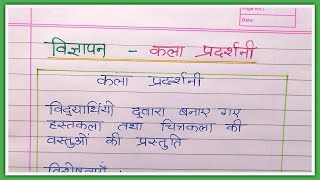 Date:
विज्ञापन - कला प्रदर्शनी
कला प्रदर्शनी
विद्यार्थियों द्वारा बनाए गए
हस्तकला तथा चित्रकला की
वस्तुओं की प्रस्तुति
विशेषताएँ :